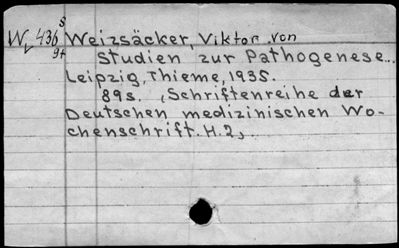 s
W, 436 Weizsäcker, Viktor von
9+ Studien zur Pathogenese...
Leipzig, Thieme, 1935.
89s. (Schriftenreihe der
Deutschen medizinischen Wo-
chenschrift. H. 2,